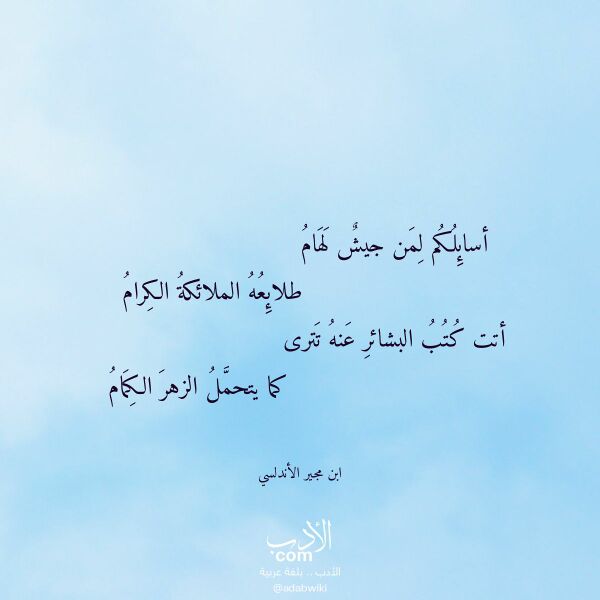 أسائِلُكُم لِمَن جيشٌ لَهَامُ
طلائِعُهُ الملائكةُ الكِرامُ
أتت كُتُبُ البشائرِ عَنهُ تَترى
كما يتحمَّلُ الزهرَ الكِمَامُ
ابن مجير الأندلسي
الأدب
.com
الأدب .. بلغة عربية
@adabwiki